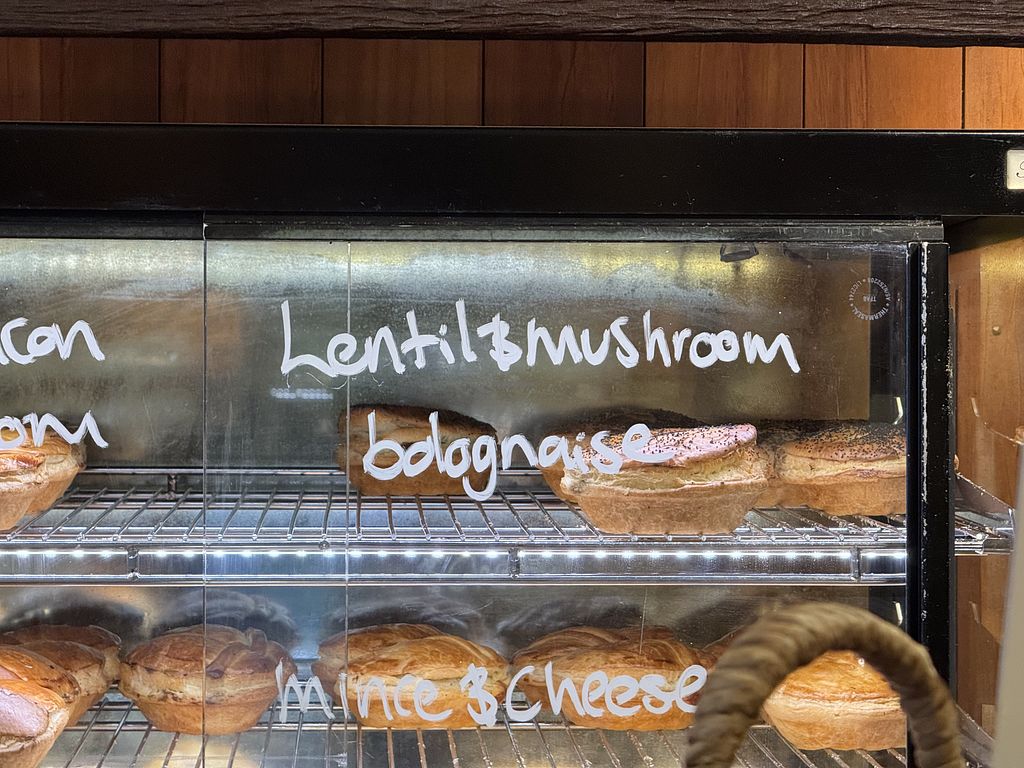 Lentil & mushroom
bolognaise
mince & cheese